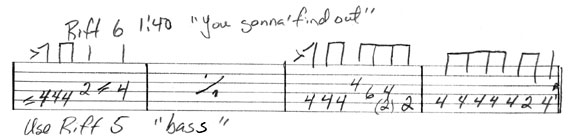 Riff 6 1:40 "You gonna' find out"
444 2 4 444 4 6 4 (2) 2 4 4 4 4 4 2 4
Use Riff 5 "bass"